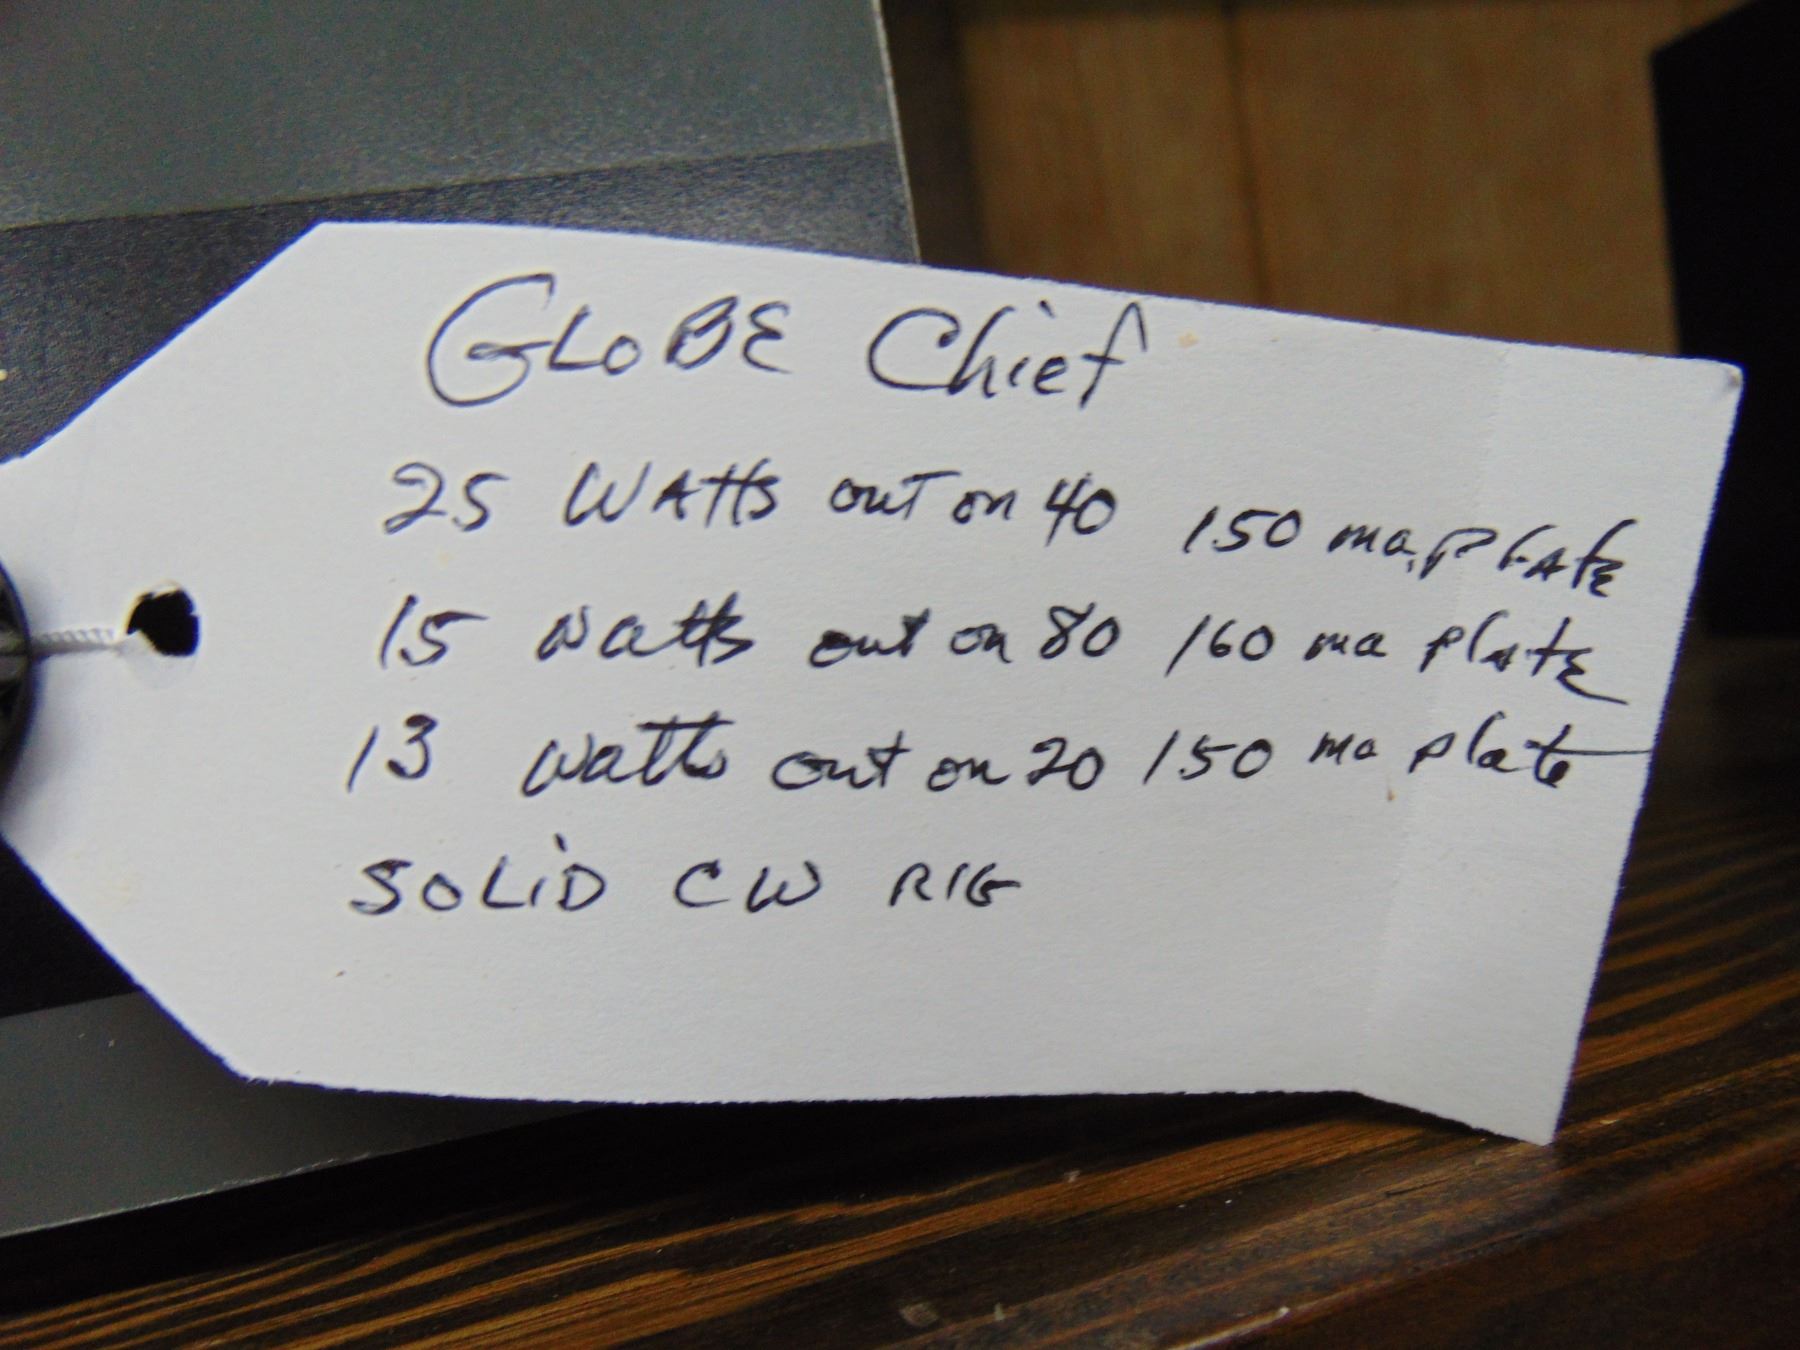 GLOBE Chief
25 WATTS out on 40 150 ma, PLATE
15 watts out on 80 160 ma plate
13 watts out on 20 150 ma plate
SOLiD CW RIG